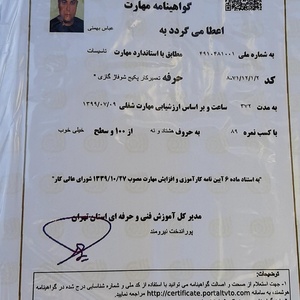 گواهینامه مهارت
عباس بهمنی
اعطا می گردد به
به شماره ملی ۴۹۱۰۳۸۱۰۰۱ مطابق با استاندارد مهارت تاسیسات
کد ۸-۷۱/۱۲/۱/۲ حرفه تعمیرکار پکیج شوفاژ گازی *
به مدت ۳۷۲ ساعت و بر اساس ارزشیابی مهارت شغلی ۱۳۹۹/۰۷/۰۹
با کسب نمره ۸۹ به حروف هشتاد و نه از ۱۰۰ و سطح خیلی خوب
"به استناد ماده ۶ آیین نامه کارآموزی و افزایش مهارت مصوب ۱۳۳۹/۱۰/۲۷ شورای عالی کار"
مدیر کل آموزش فنی و حرفه ای استان تهران
پوراندخت نیرومند
توضیحات:
۱- جهت استعلام از صحت و اصالت گواهینامه می توانید با استفاده از کد ملی و شماره شناسایی درج شده در گواهینامه
هوشمند، به سامانه http://certificate.portaltvto.com مراجعه نمایید.